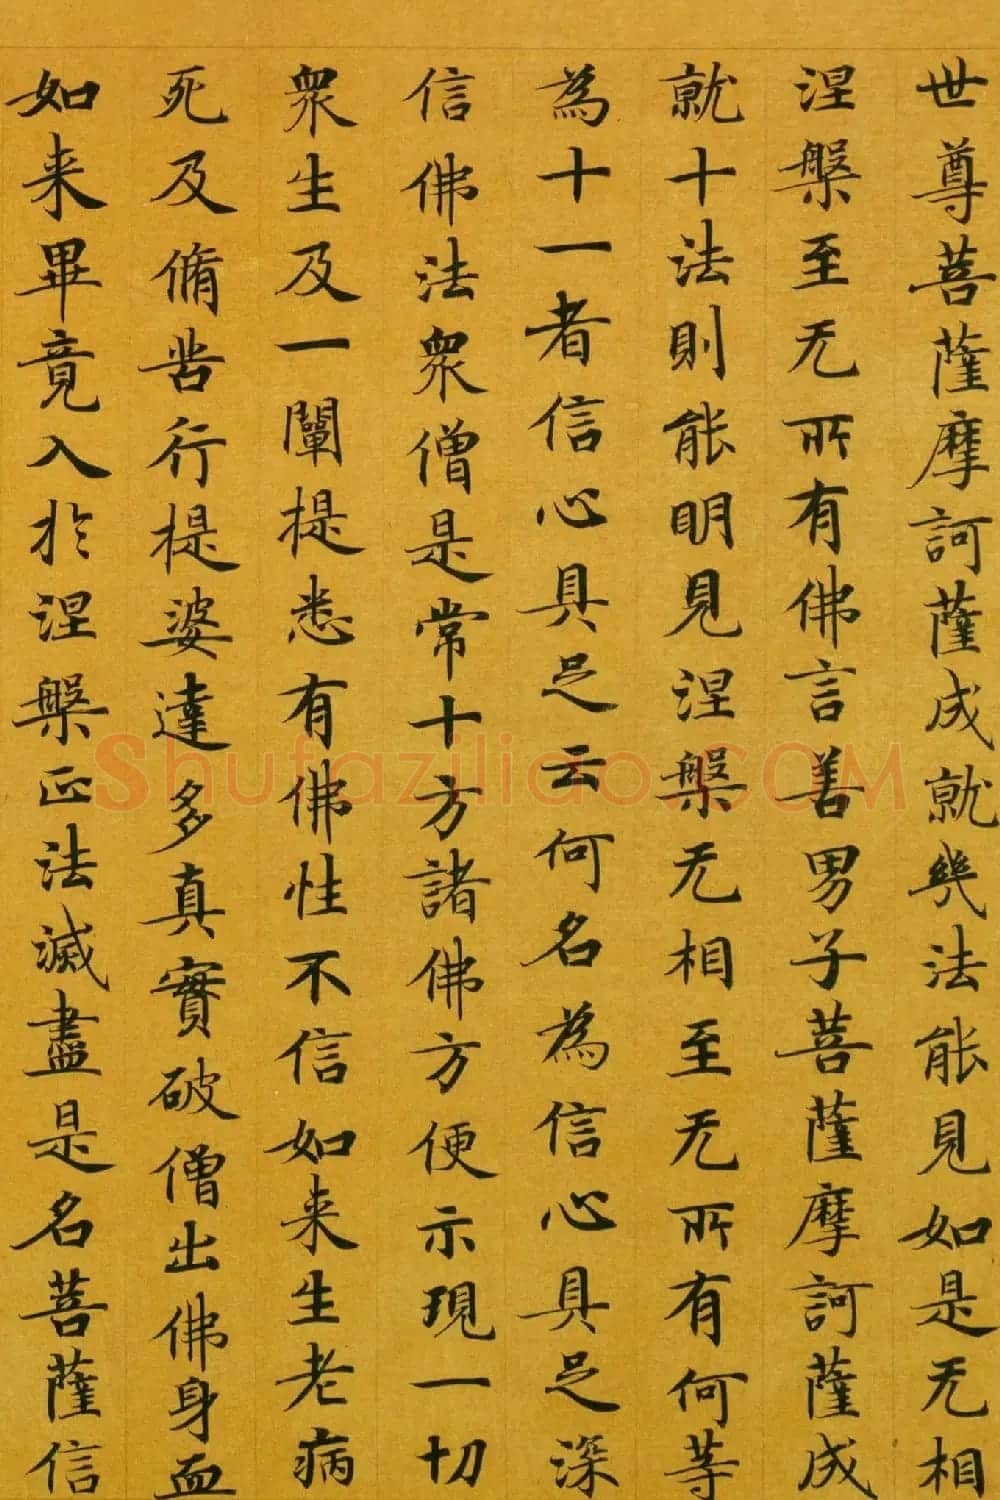 世尊菩薩摩訶薩成就幾法能見如是无相
涅槃至无所有佛言善男子菩薩摩訶薩成
就十法則能明見涅槃无相至无所有何等
為十一者信心具足云何名為信心具足深
信佛法衆僧是常十方諸佛方便示現一切
衆生及一闡提悉有佛性不信如来生老病
死及脩苦行提婆達多真實破僧出佛身血
如来畢竟入於涅槃正法滅盡是名菩薩信
Shufaziliao.COM